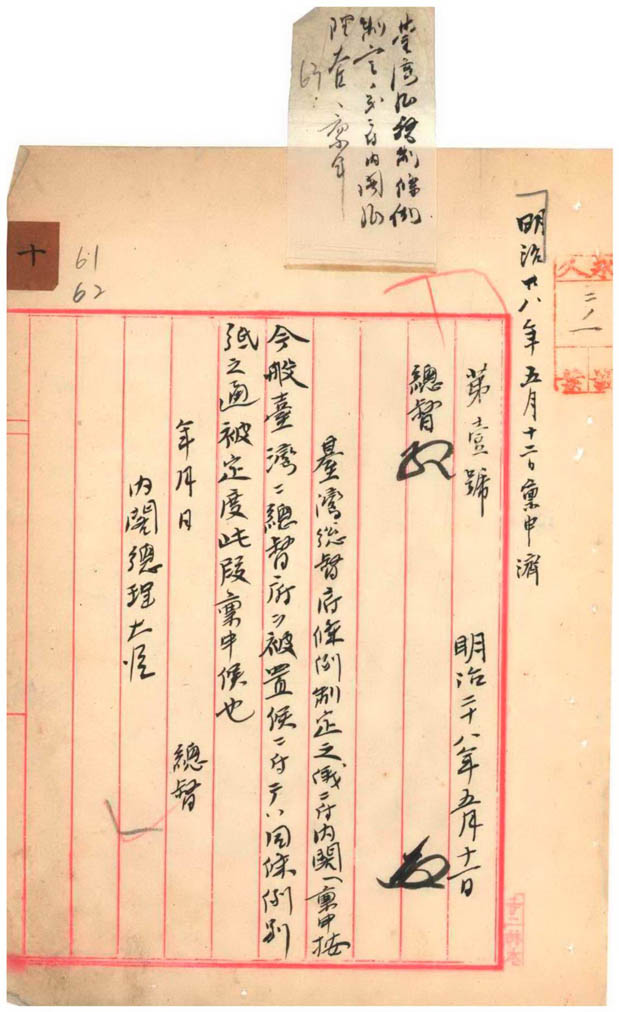 制定ノ義ニ付内閣総
理大臣ヘ稟申
63
永久
二ノ一
明治廿八年五月十二日稟申濟
第壹號
明治二十八年五月十一日
總督
臺灣總督府條例制定之儀ニ付内閣ヘ稟申按
今般臺湾ニ總督府ヲ被置候ニ付テハ同條例別
紙之通被定度此段稟申候也
年月日
總督
内閣總理大臣
十
61
62